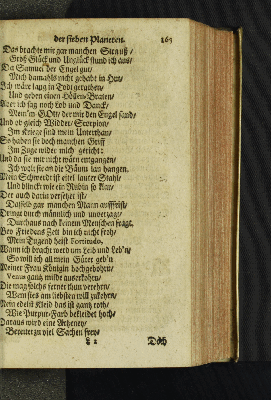 der sieben Planeten. 163
Das brachte mir gar manchen Strauß/
Groß Glück und Unglück stund ich aus/
Da Samuel der Engel gut/
Mich damahls nicht gehabt in Hut/
Ich wäre lang in Todt gerathen/
Und geben einen Höllen-Braten/
Aber ich sag noch Lob und Danck/
Mein'm GOtt/ der mir den Engel sand/
Und ob gleich Widder/ Scorpion/
Im Kriege sind mein Unterthan/
So haben sie doch manchen Griff
Im Zuge wider mich gericht:
Und da sie mir nicht wären entgangen/
Ich wolt sie an die Bäum lan hangen.
Mein Schwerdt ist eitel lauter Stahl/
Und blinckt wie ein Rubin so klar/
Der auch darin versetzet ist/
Dasselb gar manchen Mann auffrist/
Dringt durch männlich und unverzagt/
Durchaus nach keinem Menschen fragt.
Bey Friedens Zeit bin ich nicht froh/
Mein Tugend heist Fortitudo.
Wann ich bracht werd um Leib und Leb'n/
So will ich all mein Güter geb'n
Meiner Frau Königin hochgebohrn/
Venus gantz milde auserkohrn/
Die mag solchs ferner thun verehrn/
Wem sie's am liebsten will zukehrn/
Mein edelst Kleid das ist gantz roth/
Wie Purpur-Farb bekleidet hoch/
Daraus wird eine Artzeney/
Bereitet zu viel Sachen frey/
L 2 Doch